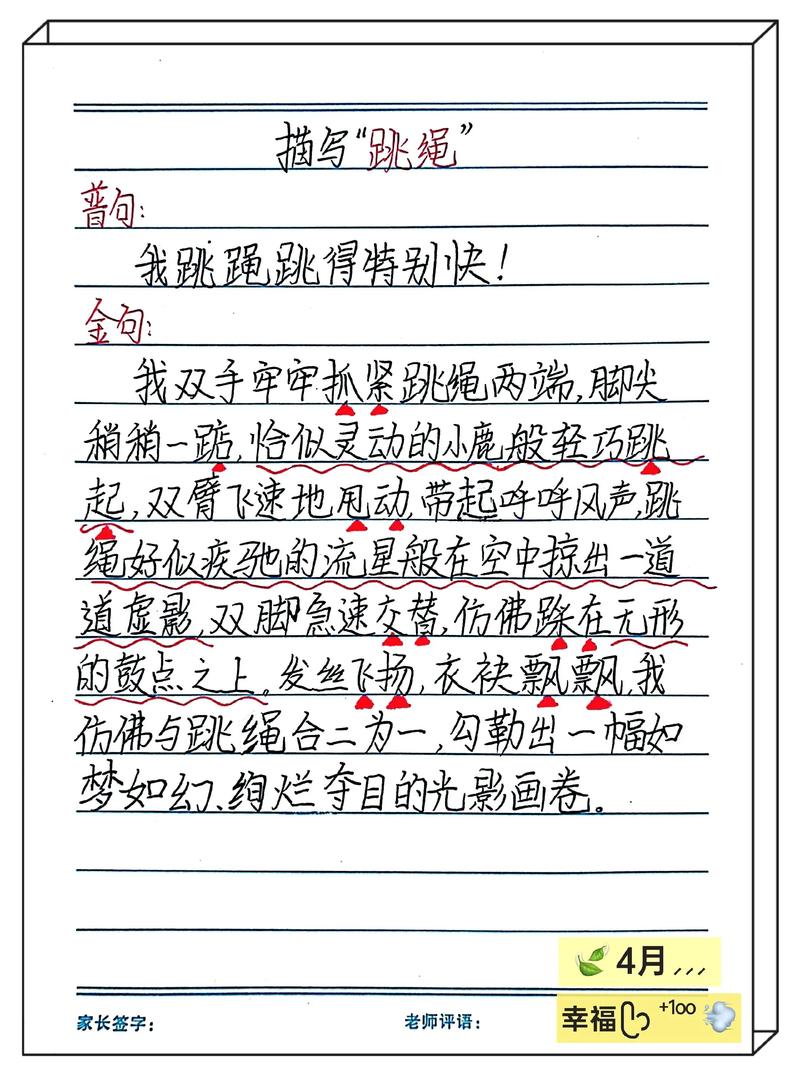 描写“跳绳”
普句:
我跳绳跳得特别快!
金句:
我双手牢牢抓紧跳绳两端,脚尖
稍稍一踮,恰似灵动的小鹿般轻巧跳
起,双臂飞速地甩动,带起呼呼风声,跳
绳好似疾驰的流星般在空中掠出一道
道虚影,双脚急速交替,仿佛踩在无形
的鼓点之上。发丝飞扬,衣袂飘飘,我
仿佛与跳绳合二为一,勾勒出一幅如
梦如幻、绚烂夺目的光影画卷。
4月,,,
幸福 +100
家长签字:
老师评语: